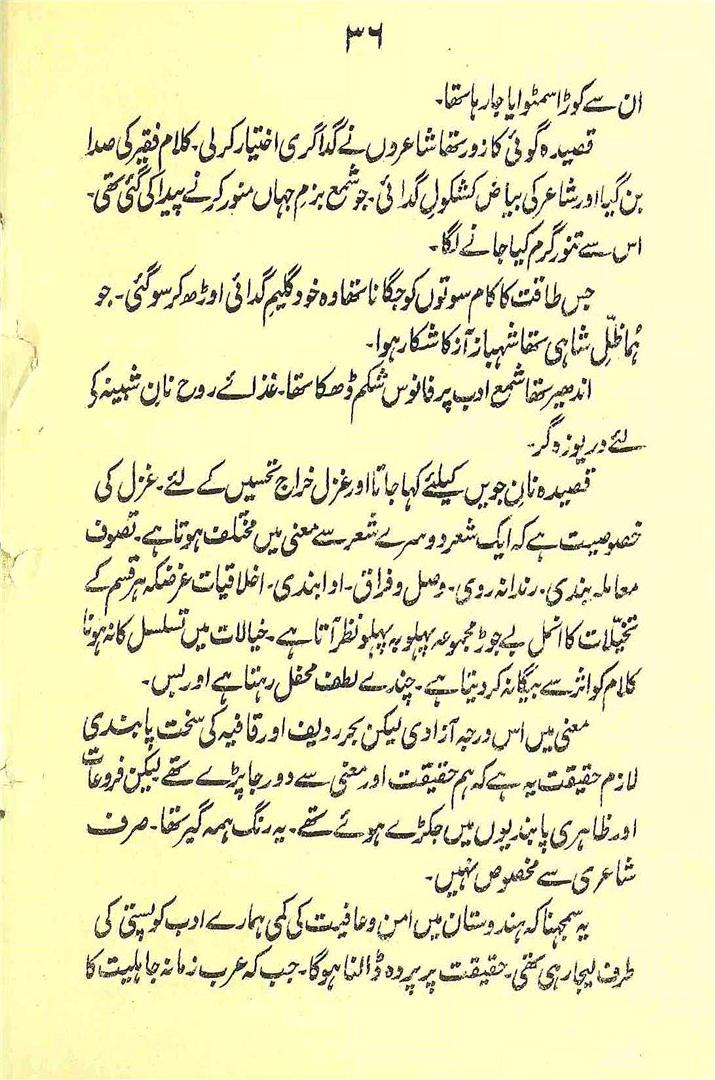 ۳۶
ان سے کوڑا سمٹوایا جا رہا تھا۔
قصیدہ گوئی کا زور تھا شاعروں نے گداگری اختیار کر لی۔ کلام فقیر کی صدا
بن گیا اور شاعر کی بیاض کشکولِ گدائی۔ جو شمع بزمِ جہاں منور کرنے پیدا کی گئی تھی۔
اس سے تنور گرم کیا جانے لگا۔
جس طاقت کا کام سوتوں کو جگانا تھا وہ خود گلیمِ گدائی اوڑھ کر سو گئی۔ جو
ہُما ظلِّ شاہی تھا شہباز آز کا شکار ہوا۔
اندھیر تھا شمع ادب پر فانوس شکم ڈھکا تھا۔ غذائے روح نانِ شبینہ کی
لئے دریوزہ گر۔
قصیدہ نانِ جویں کیلئے کہا جاتا اور غزل خراج تحسیں کے لئے۔ غزل کی
خصوصیت ہے کہ ایک شعر دوسرے شعر سے معنی میں مختلف ہوتا ہے۔ تصوف
معاملہ بندی۔ رندانہ روی۔ وصل و فراق۔ ادا بندی۔ اخلاقیات غرضکہ ہر قسم کے
تخیّلات کا انمل بے جوڑ مجموعہ پہلو بہ پہلو نظر آتا ہے۔ خیالات میں تسلسل کا نہ ہونا
کلام کو اثر سے بیگانہ کر دیتا ہے۔ چندے لطف محفل رہتا ہے اور بس۔
معنی میں اس درجہ آزادی لیکن بحر ردیف اور قافیہ کی سخت پابندی
لازم حقیقت یہ ہے کہ ہم حقیقت اور معنی سے دور جا پڑے تھے لیکن فروعات
اور ظاہری پابندیوں میں جکڑے ہوئے تھے۔ یہ رنگ ہمہ گیر تھا۔ صرف
شاعری سے مخصوص نہیں۔
یہ سمجہنا کہ ہندوستان میں امن و عافیت کی کمی ہمارے ادب کو پستی کی
طرف لیجا رہی تھی۔ حقیقت پر پردہ ڈالنا ہوگا۔ جب کہ عرب زمانہ جاہلیت کا